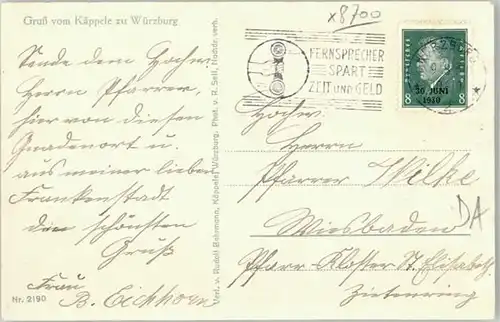 Gruß vom Käppele zu Würzburg
Sende dem Hochw.
Herrn Pfarrer,
hier von diesem
Gnadenort u.
aus meiner lieben
Frankenstadt
die schönsten
Grüß
Frau
B. Eichhorn
Nr. 2190
Verl. v. Rudolf Behrmann, Käppele, Würzburg. Phot. v. R. Sell, Nachdr. verb.
x8700
FERNSPRECHER
SPART
ZEIT UND GELD
30. JUNI
1930
8 8
Hochw.
Herrn
Pfarrer Wilke
Wiesbaden
Pfarr-Kloster St. Elisabeth
Zietenring
DA